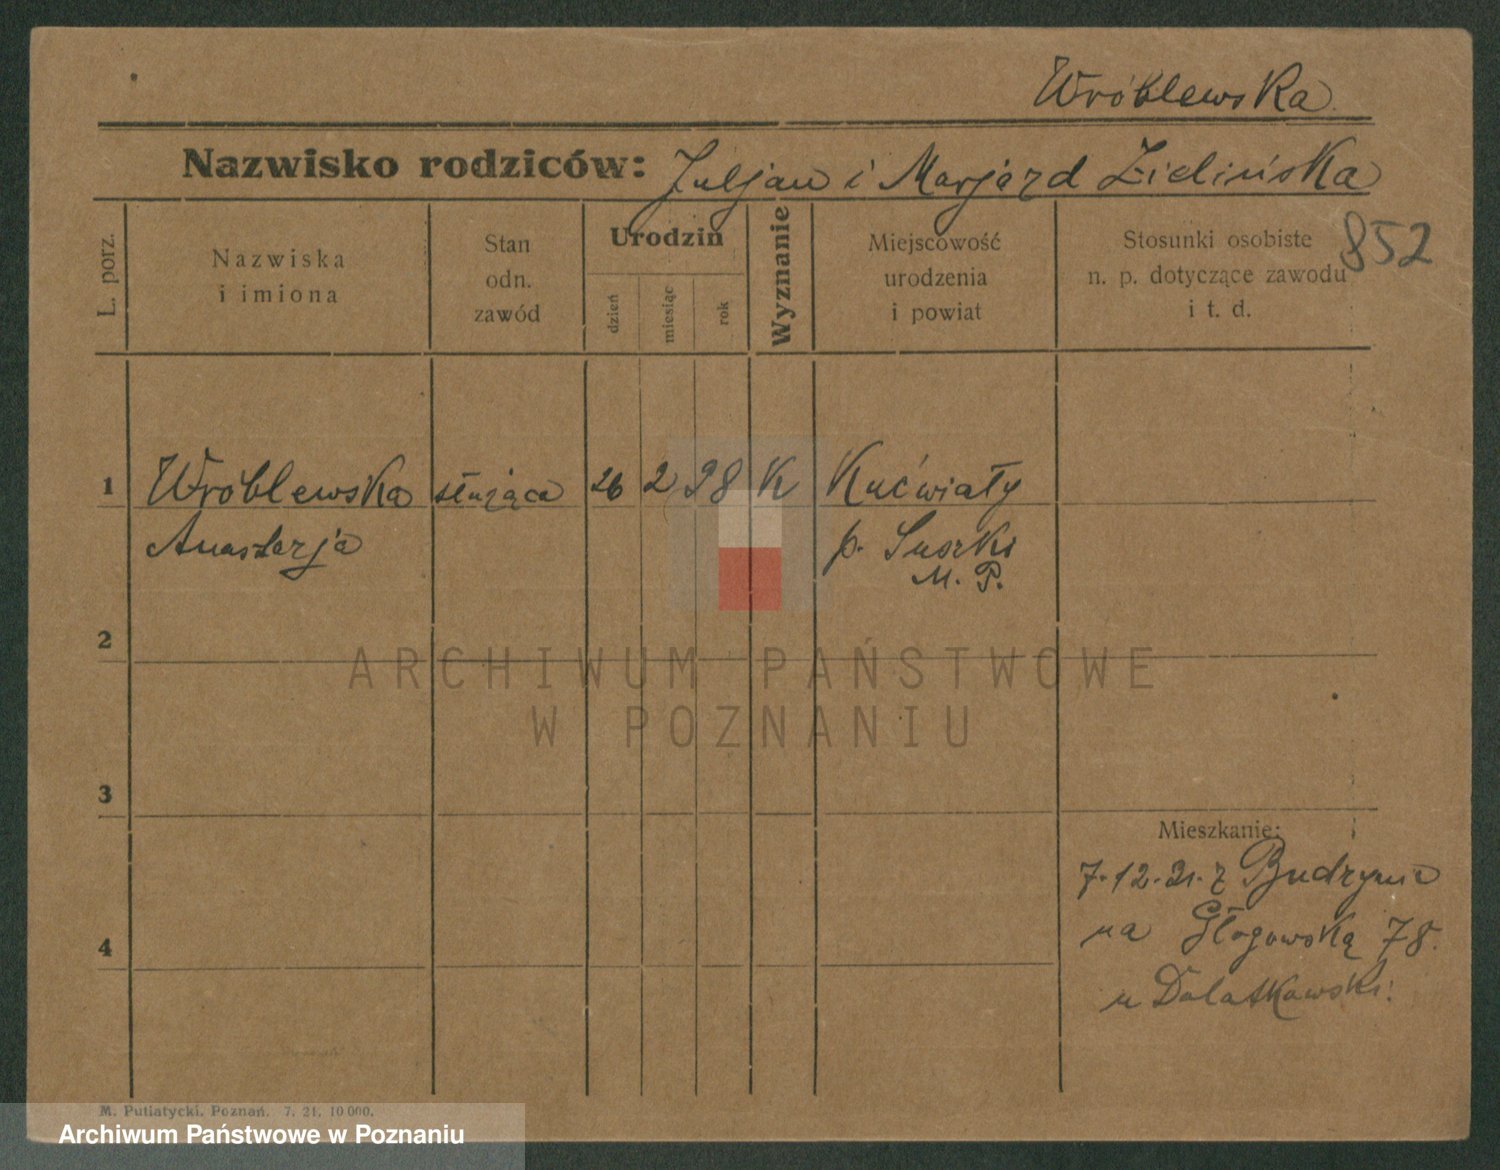 Wróblewska
Nazwisko rodziców: Juljan i Marja zd Zielińska
852
L. porz.
Nazwiska
i imiona
Stan
odn.
zawód
Urodzin
dzień
miesiąc
rok
Wyznanie
Miejscowość
urodzenia
i powiat
Stosunki osobiste
n. p. dotyczące zawodu
i t. d.
1 Wróblewska służąca 26 2 98 K Kućwiały
Anastazja p. Suszki
M. P.
2
3
4
Mieszkanie:
7.12.21. z Budzynia
na Głogowską 78.
u Dolatkowski.
M. Putiatycki, Poznań. 7. 21. 10 000.
ARCHIWUM PAŃSTWOWE
W POZNANIU
Archiwum Państwowe w Poznaniu